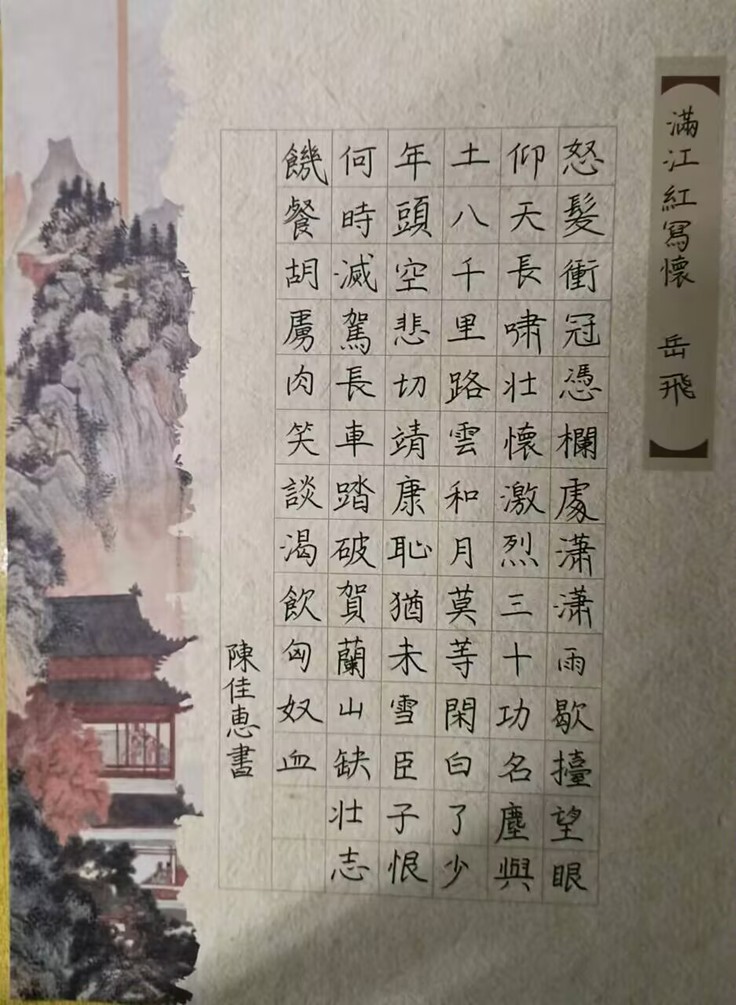 滿江紅寫懷 岳飛
怒髮衝冠憑欄處潇潇雨歇擡望眼
仰天長嘯壯懷激烈三十功名塵與
土八千里路雲和月莫等閑白了少
年頭空悲切靖康恥猶未雪臣子恨
何時滅駕長車踏破賀蘭山缺壯志
饑餐胡虜肉笑談渴飲匈奴血
陳佳惠書